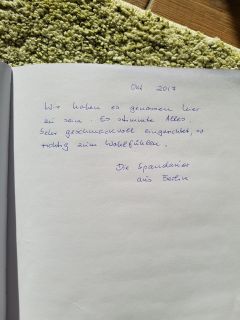 Okt 2017
Wir haben es genossen hier
zu sein. Es stimmte Alles.
Sehr geschmackvoll eingerichtet, so
richtig zum Wohlfühlen.
Die Spandauer
aus Berlin